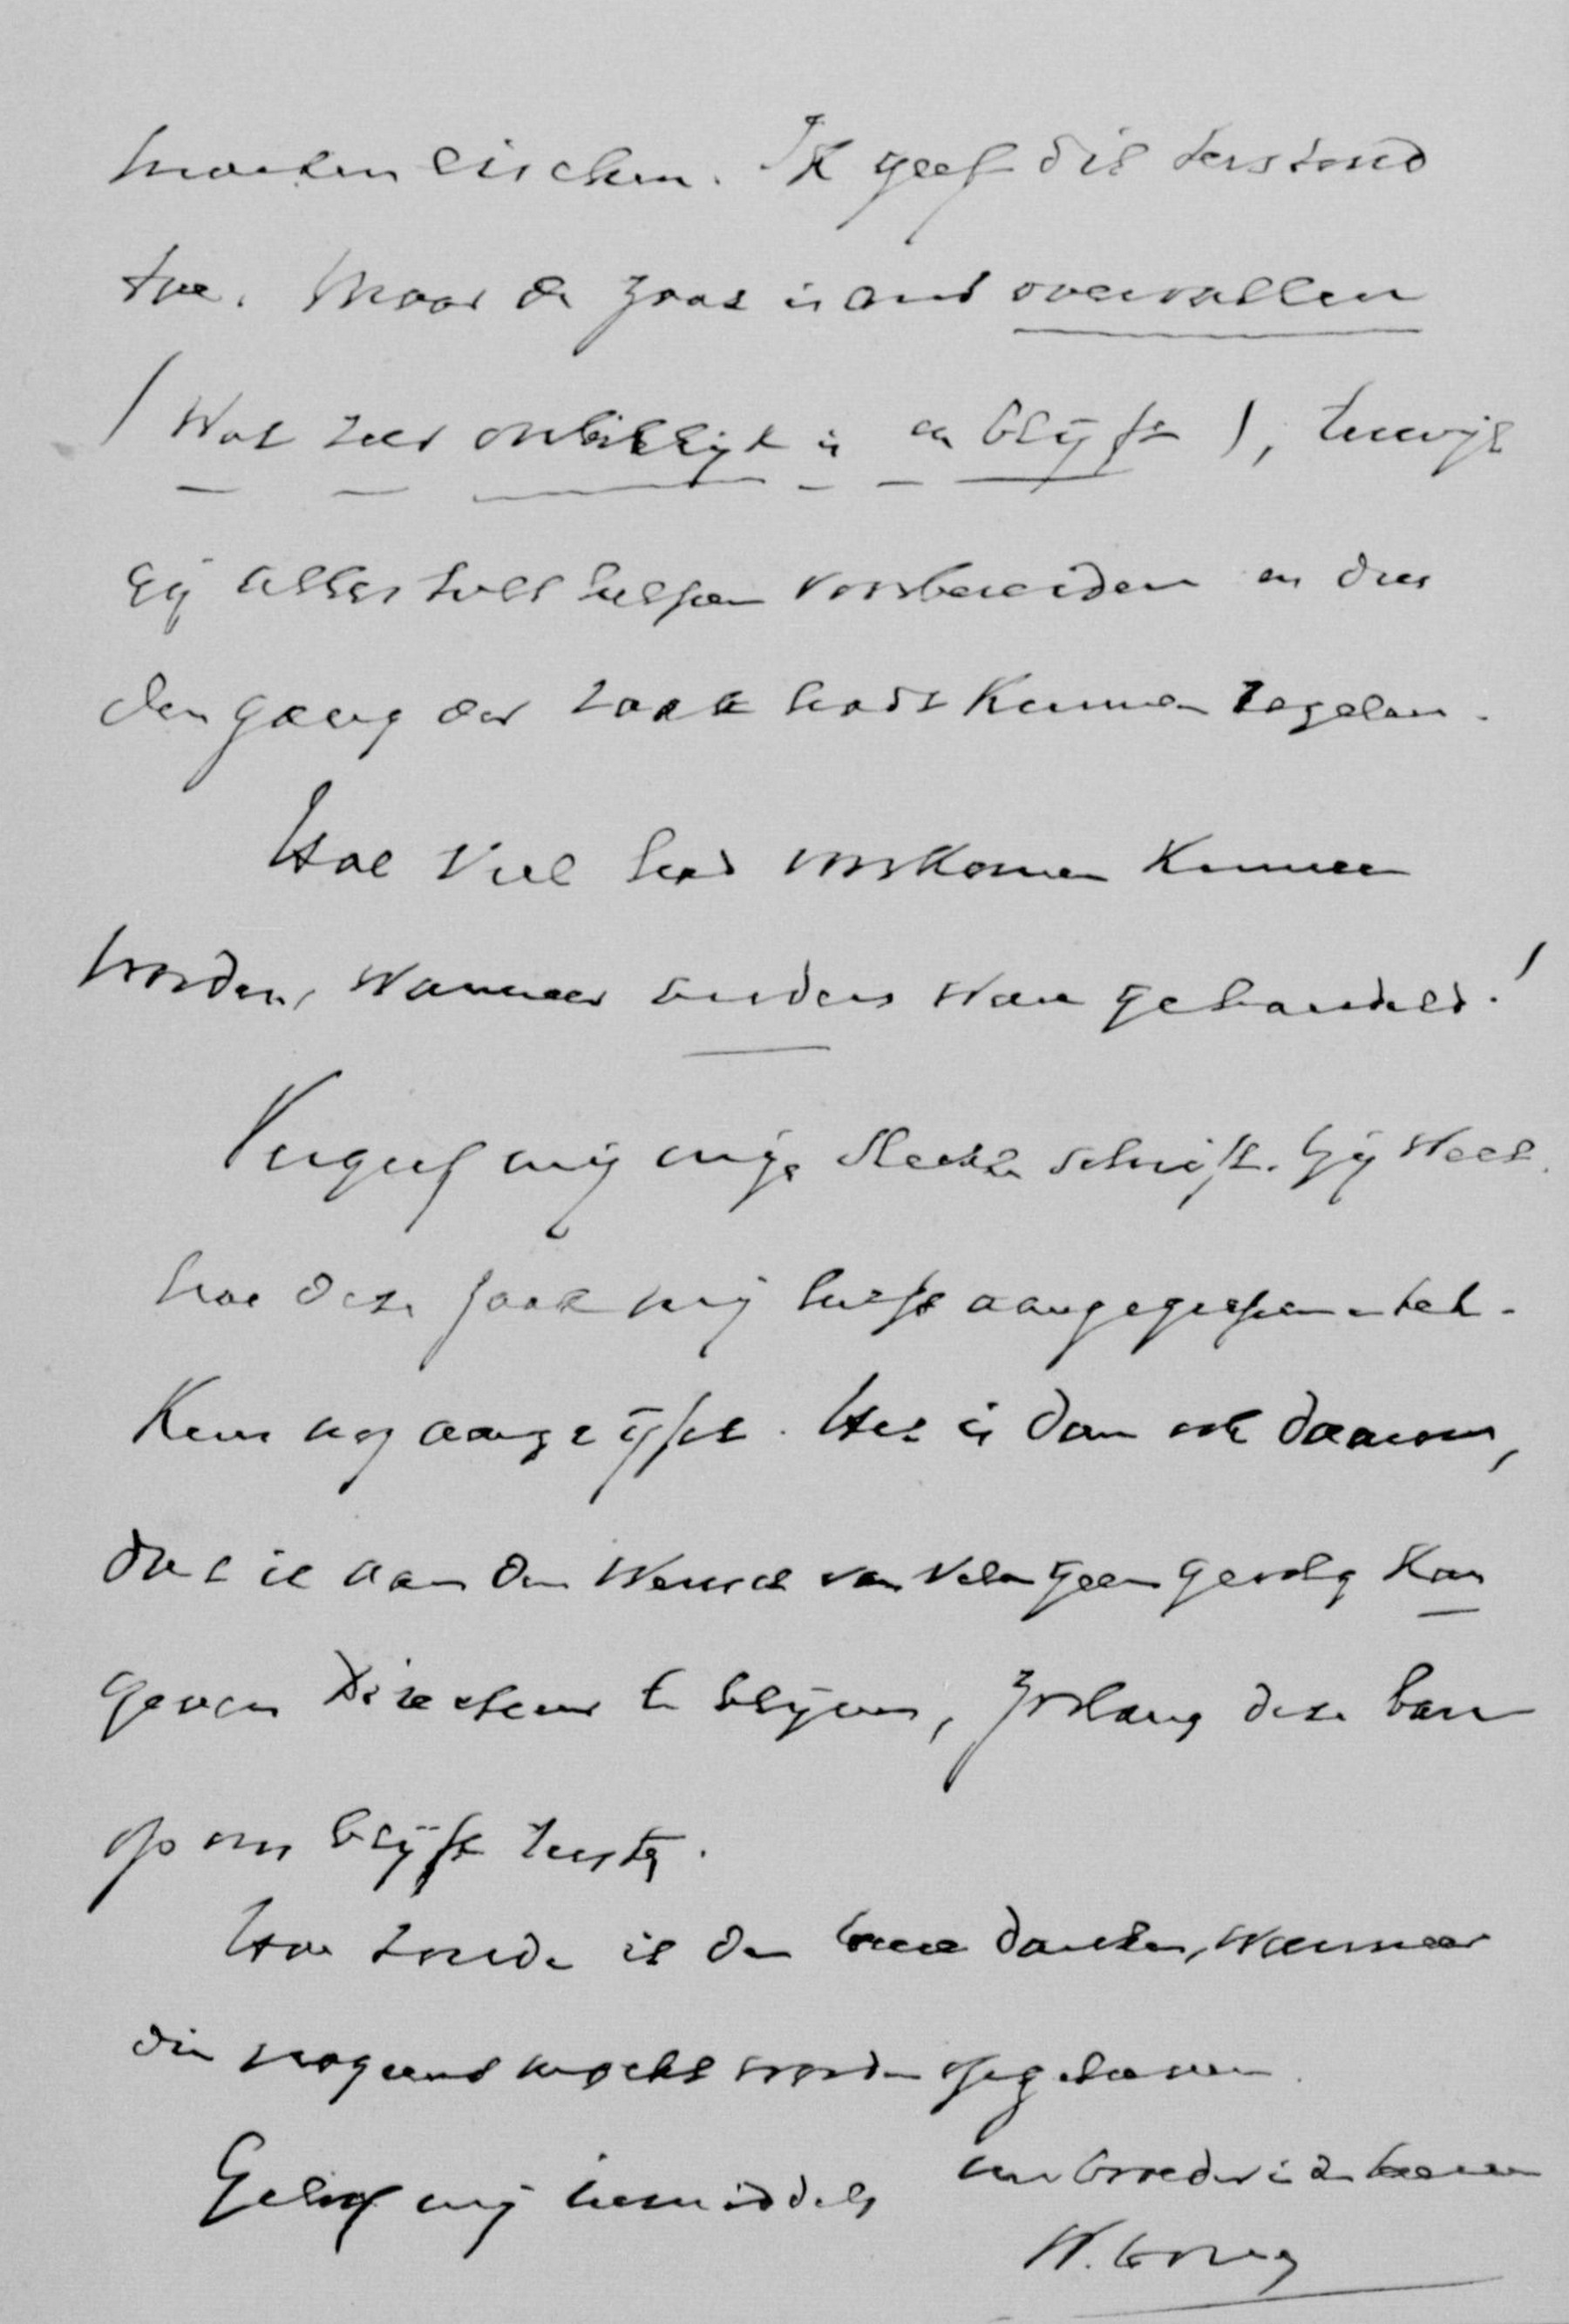 moeten eischen. Ik geef dit terstond
toe. Maar de zaak is ons overvallen
(wat zeer onbillijk is en blijft), terwijl
gij alles hadt helpen voorbereiden en dus
den gang der zaak hadt kunnen regelen.
Hoe veel had voorkomen kunnen
worden, wanneer anders ware gehandeld!
Vergeef mij mijn slecht schrift. Gij weet
hoe deze zaak mij heeft aangegrepen en tel-
kens nog aangrijpt. Het is dan ook daarom,
dat ik aan den wensch van velen geen gevolg kan
geven Directeur te blijven, zoolang deze ban
op ons blijft rusten.
Hoe zoude ik den Heere danken, wanneer
die nog eens mocht worden opgeheven.
Geloof mij inmiddels uw broeder in den Heere
W.